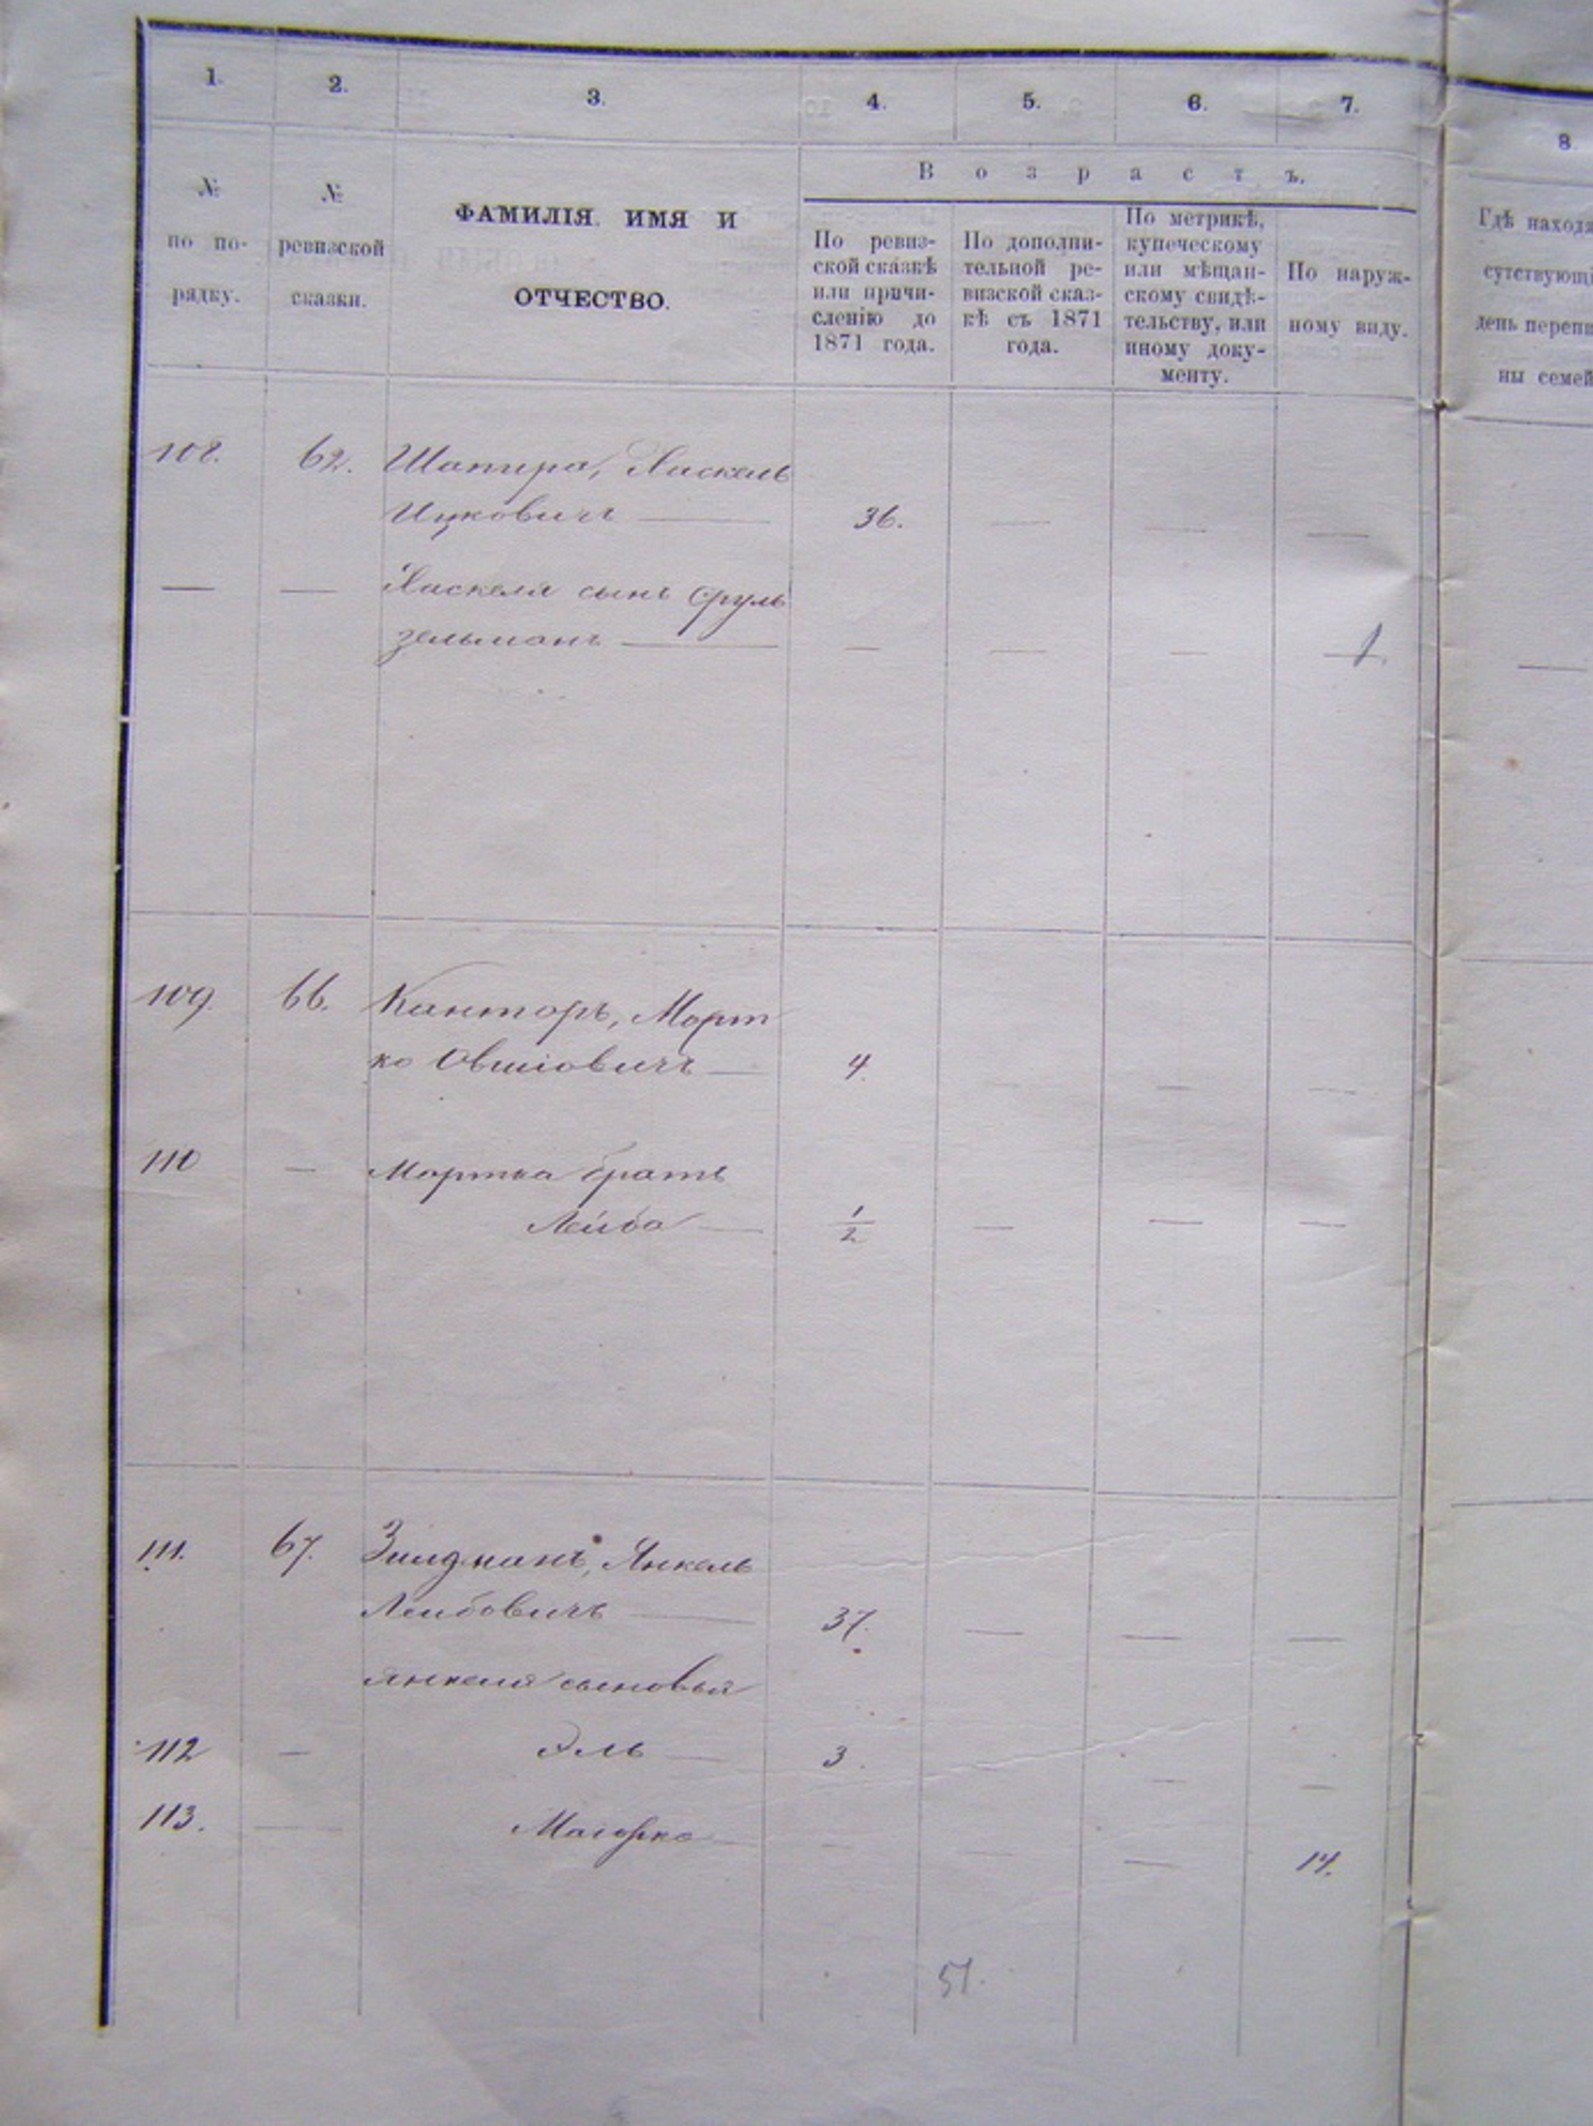 1. 2. 3. 4. 5. 6. 7.
8.
№ по по-рядку.
№ ревизской сказки.
ФАМИЛІЯ, ИМЯ И
ОТЧЕСТВО.
Возрастъ.
По ревиз-
ской сказкѣ
или причи-
сленію до
1871 года.
По дополни-
тельной ре-
визской сказ-
кѣ съ 1871
года.
По метрикѣ,
купеческому
или мѣщан-
скому свидѣ-
тельству, или
иному доку-
менту.
По наруж-
ному виду.
Гдѣ находя
сутствующі
день перепи
ны семей
108. 62. Шапира, Хаскель
Ицковичъ — 36. — — —
— — Хаскеля сынъ Сруль
зельманъ — — — — 1.
109. 66. Канторъ, Морт
ко Овшіовичъ — 4. — — —
110 — Мортка братъ
Лейба — 1/2 — — —
111. 67. Зилдманъ, Янкель
Лейбовичъ — 37. — — —
Янкеля сыновья
112 — Эль — 3. — —
113. — — — — 14.
51.